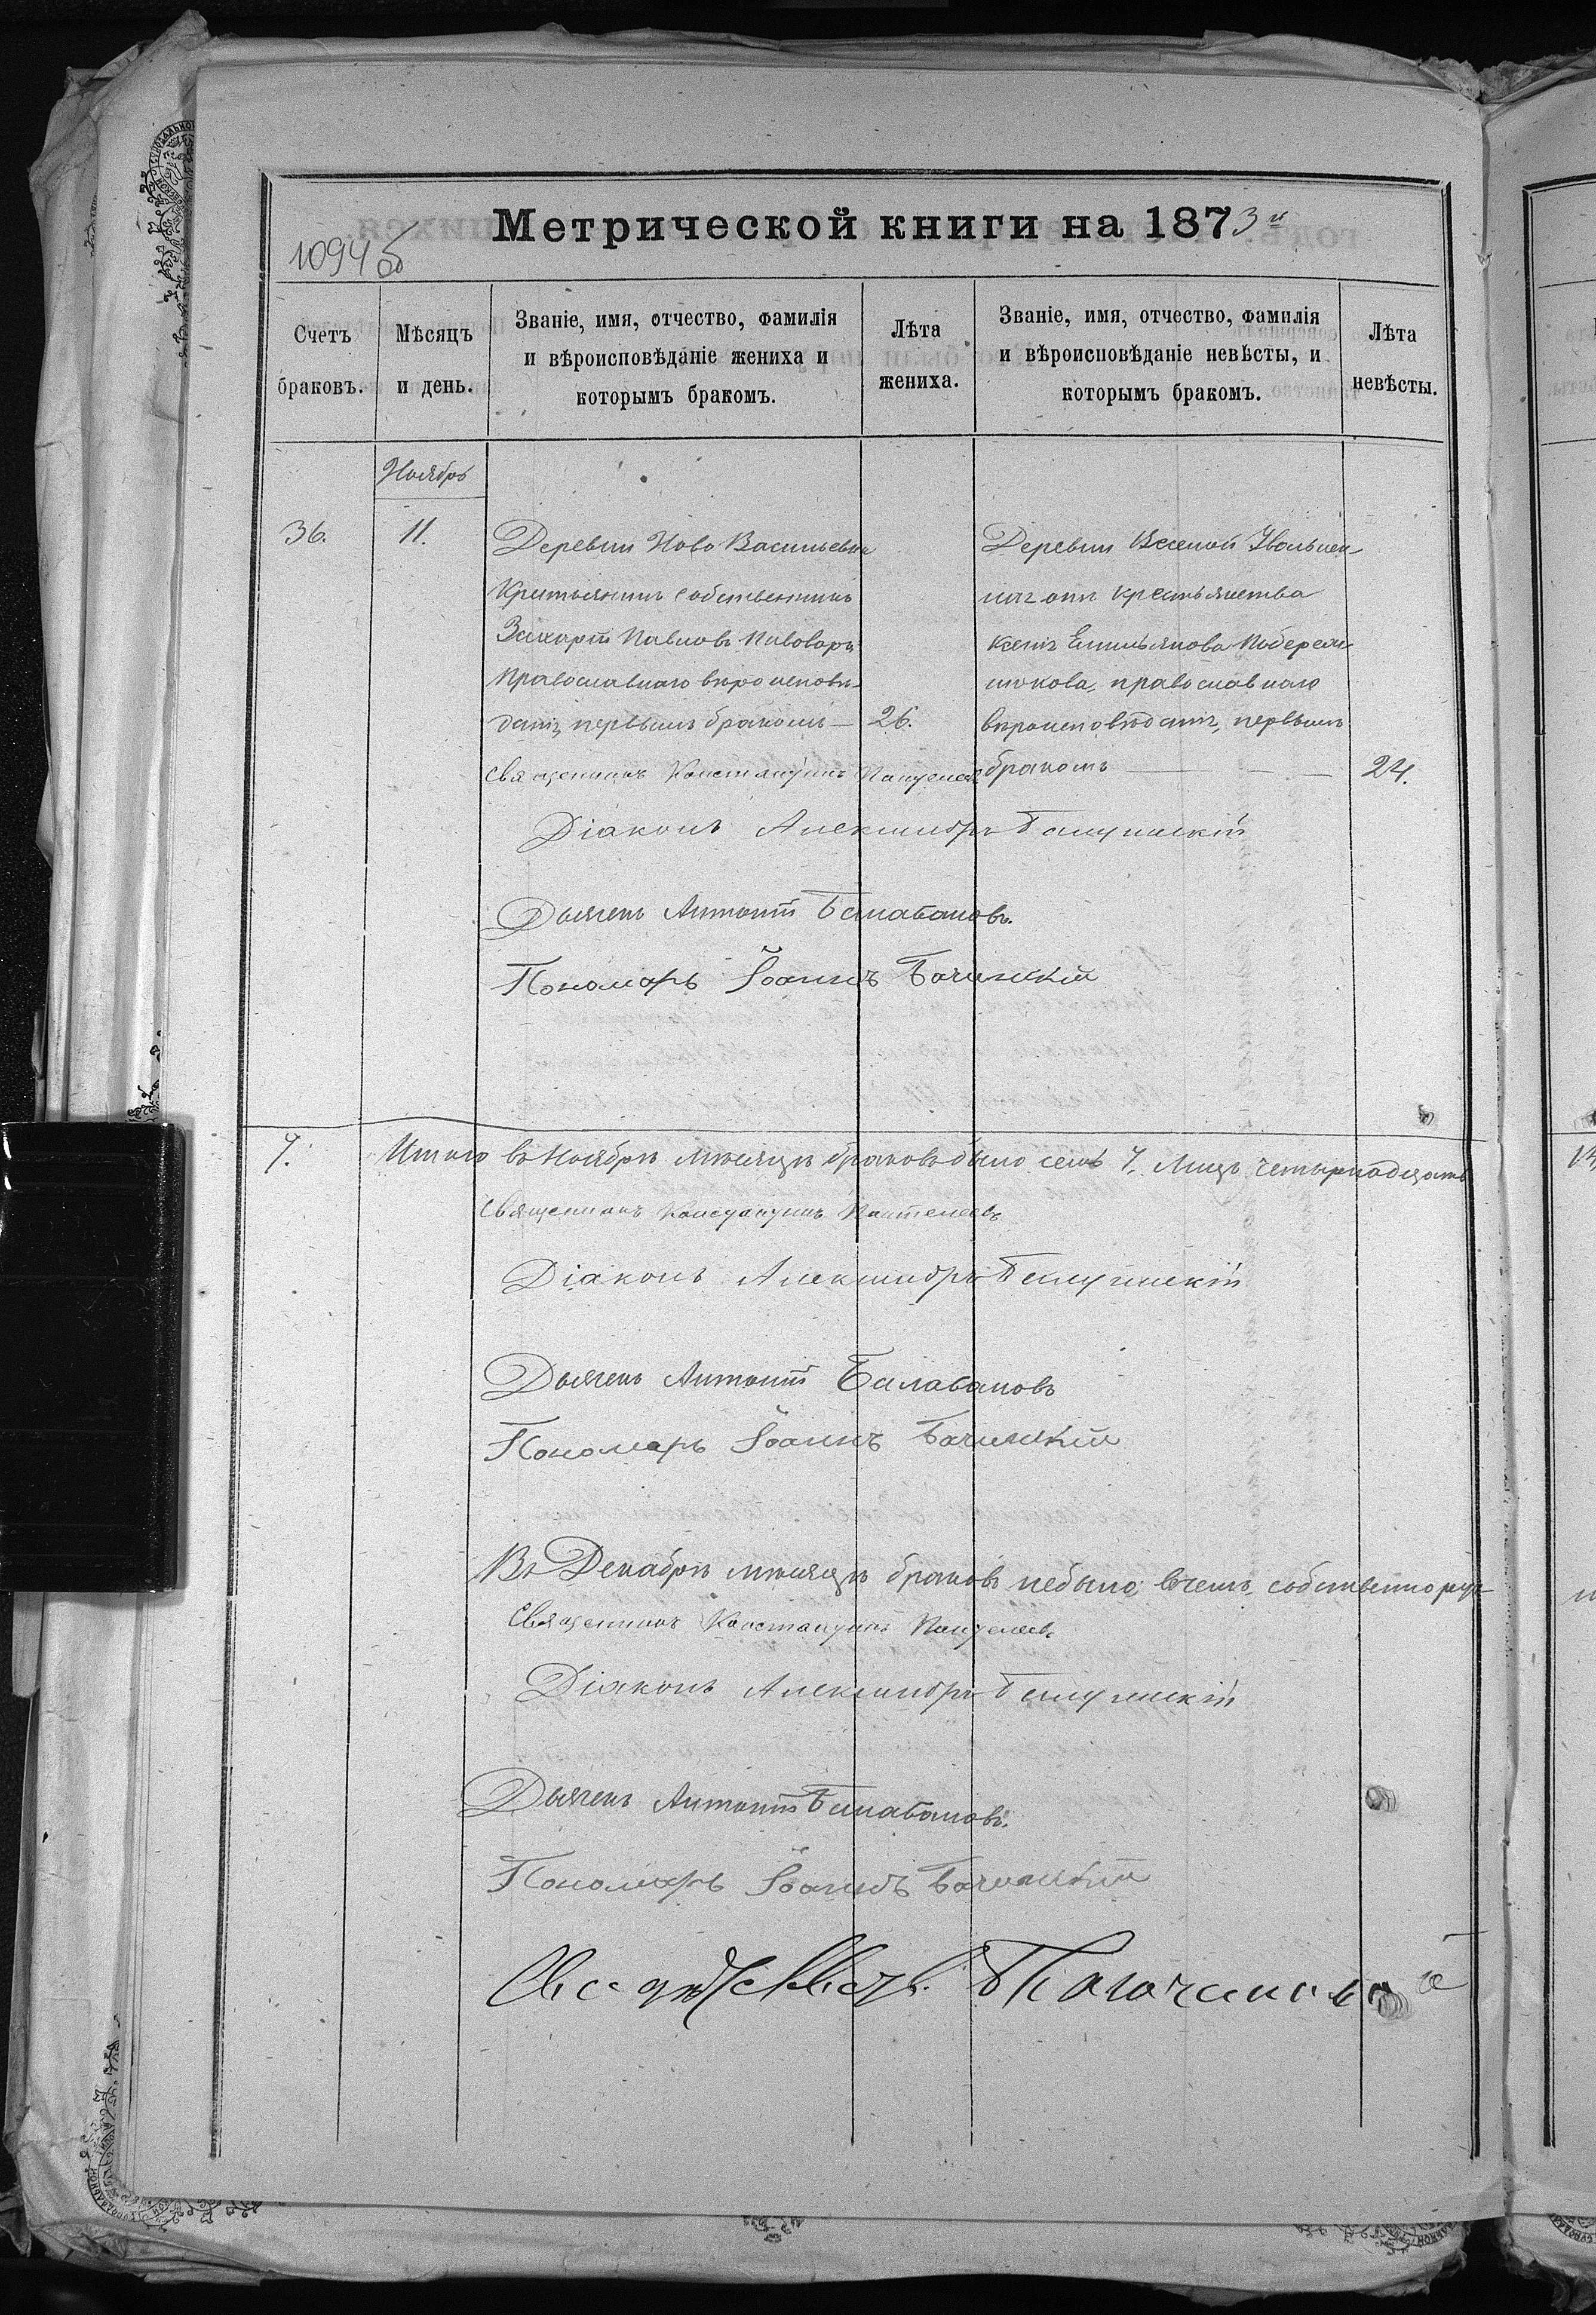 Метрической книги на 1873й
1094 об
Счетъ браковъ.
Мѣсяцъ и день.
Званіе, имя, отчество, фамилія и вѣроисповѣданіе жениха и которымъ бракомъ.
Лѣта жениха.
Званіе, имя, отчество, фамилія и вѣроисповѣданіе невѣсты, и которымъ бракомъ.
Лѣта невѣсты.
Ноябрь
36.
11.
Деревни Ново Васильевки
Крестьянинъ собственникъ
Захарій Павловъ Пивоваръ
Православнаго вѣроисповѣ-
данія, первымъ бракомъ —
26.
Деревни Веселой Уволен
ная отъ крестьянства
Ксенія Емильянова Побереж
никова, православнаго
вѣроисповѣданія, первымъ
бракомъ
24.
Священникъ Константинъ Пантелеевъ
Діаконъ Александръ
Дьячекъ Антоній Балабановъ.
Пономарь Іоаннъ Бачинскій
7. Итого въ Ноябрѣ мѣсяцѣ браковъ было семь 7. Лицъ четырнадцать
Священникъ Константинъ Пантелеевъ
Діаконъ Александръ
Дьячекъ Антоній Балабановъ
Пономарь Іоаннъ Бачинскій
Въ Декабрѣ мѣсяцѣ браковъ небыло, въ чемъ собственнорут
Священникъ Константинъ Пантелеевъ
Діаконъ Александръ
Дьячекъ Антоній Балабановъ.
Пономарь Іоаннъ Бачинскій